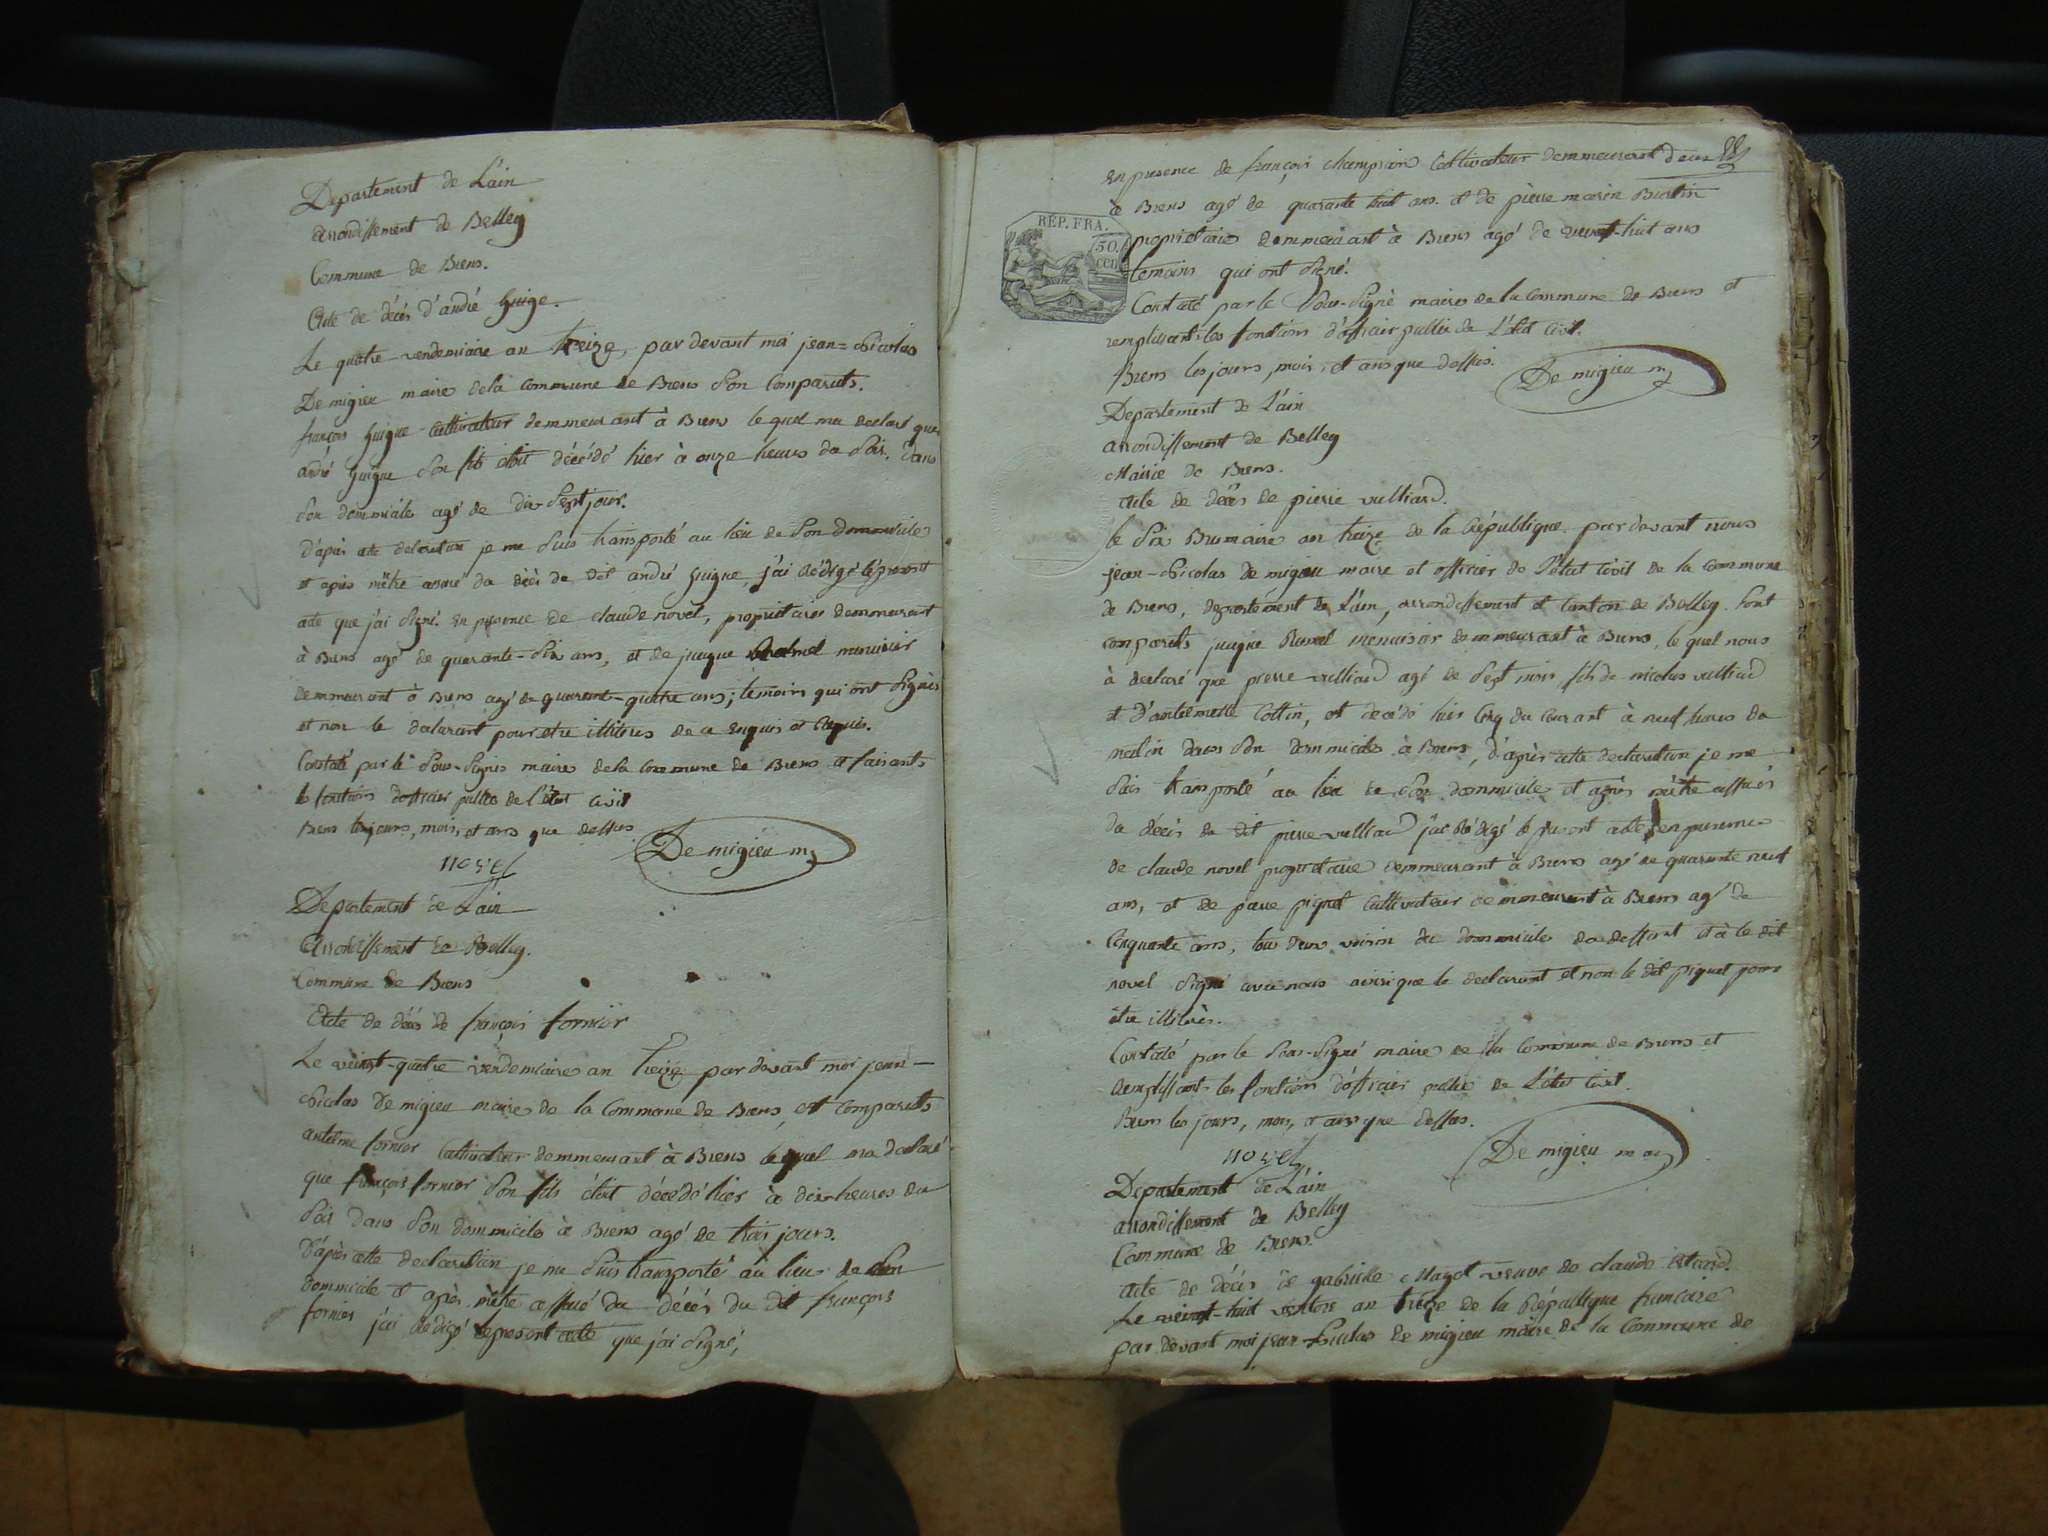 Departement de L'ain
arrondissement de Belley
Commune de Brens.
Acte de décés d'andré Guige.
Le quatre vendemiaire an treize, par devant moi jean-Nicolas
De migieu maire de la commune de Brens son comparuts.
françois Guigue cultivateur demmeurant à Brens le quel ma declaré que
andré Guigue son fils étoit décédé hier à onze heures du soir. dans
son dommicile agé de dix-sept jour.
D'après cette declaration je me suis transporté au lieu de son dommicile
et après mêtre assuré du décés du dit andré Guigue, j'ai rédigé le present
acte que j'ai signé. en presence de claude novel, proprietaire demmeurant
à Brens agé de quarante-six ans, et de jacque menuisier
demmeurant à Brens agé de quarant-quatre ans; temoins qui ont signés
et non le declarant pour etre illitéres de ce enquis et requis.
Constaté par le sous-signés maire de la commune de Brens et faisants
les fonctions d'officier public de l'état civil
Brens les jours, mois, et ans que dessus
De migieu m
novel
Departement de L'ain
Arrondissement de Belley.
Commune de Brens
Acte de décés de françois fornier
Le veingt-quatre vendemiaire an treize par devant moi jean-
Nicolas De migieu maire de la Commune de Brens, est comparuts
antelme fornier cultivateur demmeurant à Brens lequel ma declaré
que françois fornier son fils étoit décédé hier à dix heures du
soir dans son dommicile à Brens agé de trois jours.
D'après cette declaration je me suis transporté au lieu de son
dommicile et après mêtre assuré du décés du dit françois
fornier j'ai redigé le present acte que j'ai signé,
en presence de françois champion cultivateur demmeurant
à Brens agé de quarante huit ans et de pierre marin Burtin
proprietaire demmeurant à Brens agé de veingt-huit ans
temoins qui ont signé.
REP. FRA.
50
cen
Constaté par le sous-signé maire de la commune de Brens et
remplissant les fonctions d'officier public de L'état civil.
Brens les jours, mois, et ans que dessus.
De migieu m
Departement de L'ain
arrondissement de Belley
Mairie de Brens.
acte de décés de pierre vulliard.
le six Brumaire an treize de la République par devant nous
jean-Nicolas de migieu maire et officier de l'état civil de la commune
de Brens, departement de L'ain, arrondissement et canton de Belley. sont
comparuts jacque menuisier demmeurant à Brens, le quel nous
à declaré que pierre vulliard agé de sept mois, fils de nicolas vulliard
et d'antelmette Cottin, est décédé hier cinq du courant à neuf heures du
matin dans son dommicile à Brens, d'après cette declaration je me
suis transporté au lieu de son dommicile et après mêtre assurés
du décés du dit pierre vulliard j'ai rédigé le present acte, en presence
de claude novel proprietaire demmeurant à Brens agé de quarante neuf
ans, et de pierre piquet cultivateur demmeurant à Brens agé de
cinquante ans, tous deux voisin du dommicile du deffunt et à le dit
novel signé avec nous ainsi que le declarant et non le dit piquet pour
etre illitérés.
Constaté par le sous-signé maire de la commune de Brens et
remplissant les fonctions d'officier public de L'état civil.
Brens les jours, mois, et ans que dessus.
De migieu mai
novel
Departement de L'ain
arrondissement de Belley
Commune de Brens.
acte de décés de gabrielle Magot veuve de claude
Le veingt-huit ventose an treize de la République francaise
par devant moi jean Nicolas de migieu maire de la commune de